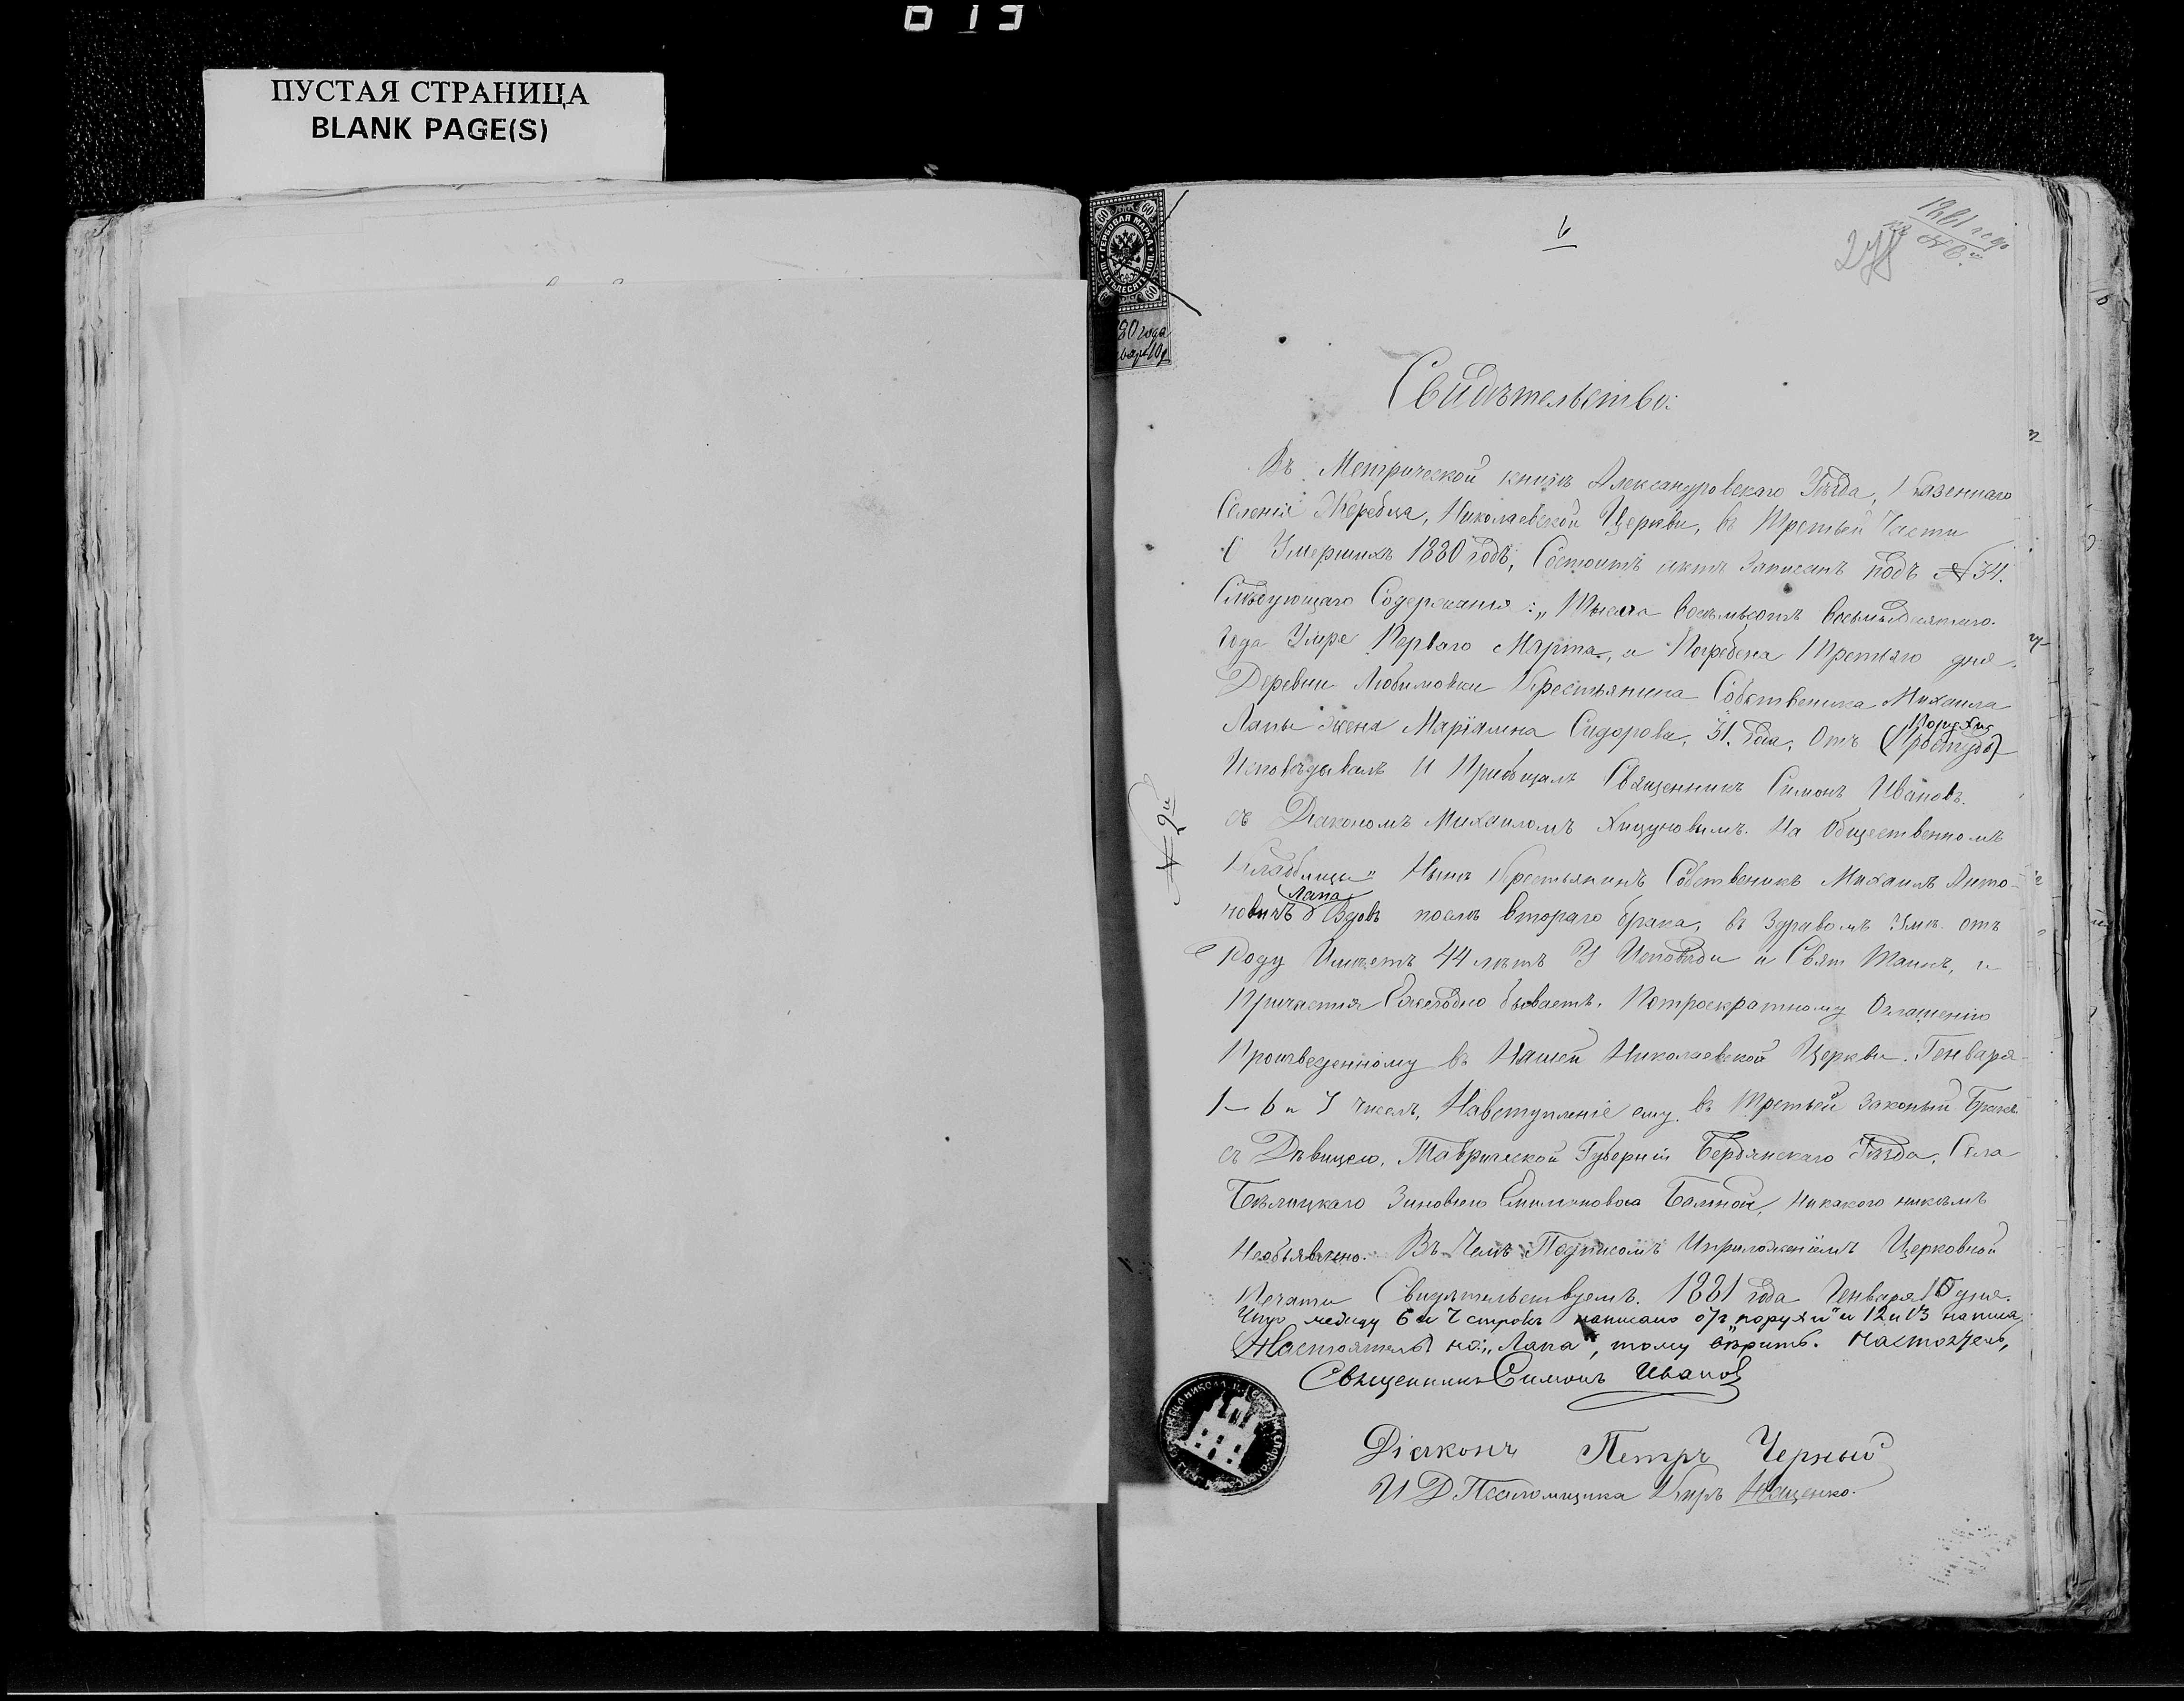 ПУСТАЯ СТРАНИЦА
BLANK PAGE(S)
ГЕРБОВАЯ МАРКА
ШЕСТЬДЕСЯТЪ КОП.
60
6
Свидѣтельство.
Въ Метрической книгѣ Александровскаго Уѣзда, Казеннаго
Селенія Жеребца, Николаевской Церкви, въ Третьей Части
о Умершихъ 1880 годъ, Состоитъ актъ Записанъ подъ № 34.
Слѣдующаго Содержания: „Тысяча восемьсотъ восемьдесятаго
года Умре Перваго Марта, и Погребена Третяго дня
Деревни Любимовки Крестьянина Собственика Михаила
Лапы жена Маріамна Сидорова, 31. года, Отъ (Простуды)
Исповѣдывалъ И Приобщалъ Священникъ Симонъ Ивановъ.
съ Діакономъ Михаиломъ На Общественномъ
Кладбищи" Нынѣ Крестьянинъ Собственикъ Михаилъ Анто-
Лапа
новичъ Вдовъ послѣ втораго брака, въ Здравомъ Умѣ. отъ
Роду Имѣетъ 44 лѣтъ У Исповѣди и Свят Таинъ, и
Причастия Ежегодно бываетъ. Потроекратному Оглашенію
Произведенному въ Нашей Николаевской Церкви. Генваря
1 – 6 и чиселъ, Навступленіе ему въ Третьей Законый Бракъ
съ Дѣвицею, Таврической Губерніи Бердянскаго Уѣзда, Села
Бѣлицкаго Зиновіею никакого никѣмъ
Необъявлено. Въ Чемъ Подписомъ Иприложеніемъ Церковной
Печати Свидѣтельствуемъ. 1881 года Генваря 10 дня.
Что между 6 и 7 строкъ написано и 12 и 13 написа
но: „Лапа", тому вѣрить. Настоятель,
Священникъ Симонъ Ивановъ
Діаконъ Петръ Черный
И Д Псаломщика Киръ